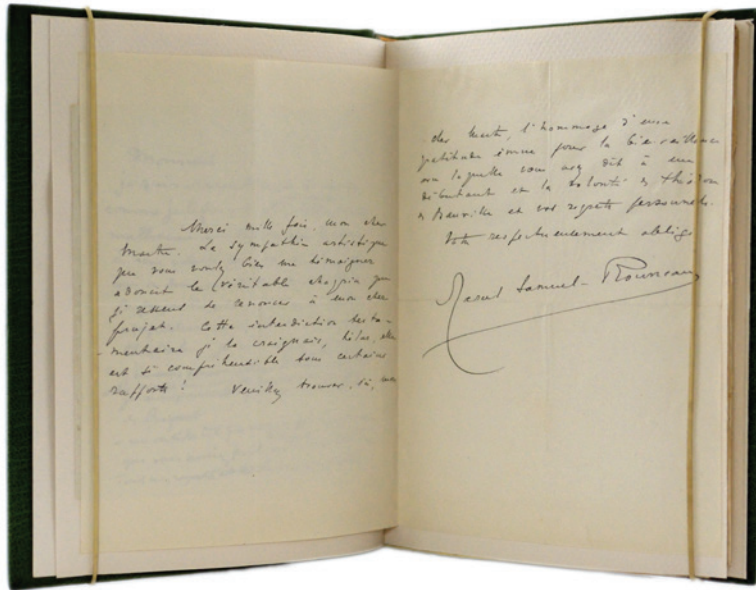 Merci mille fois, mon cher
Maître. La sympathie artistique
que vous voulez bien me témoigner
adoucit le véritable chagrin que
j'ai ressens de renoncer à mon cher
projet. Cette interdiction testa-
mentaire je la craignais, hélas, elle
est si compréhensible sous certains
rapports ! Veuillez trouver, ici, mon
cher Maître, l'hommage d'une
gratitude émue pour la bienveillance
avec laquelle vous avez dit à un
débutant et la volonté de Théodore
de Banville et vos regrets personnels.
Votre respectueusement obligé
Samuel-Rousseau